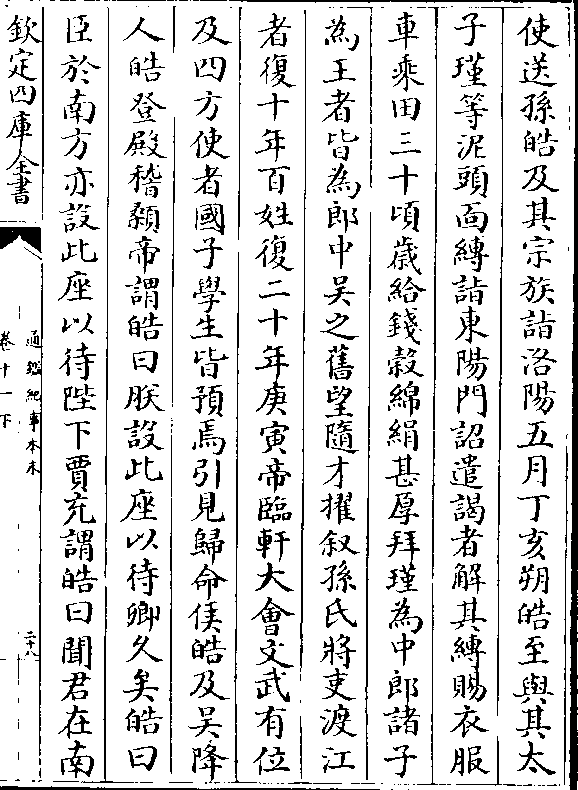 使送孫皓及其宗族詣洛陽五月丁亥朔皓至與其太
子瑾等泥頭面縛詣東陽門詔遣謁者解其縛賜衣服
車乗田三十頃歲給錢榖綿絹甚厚拜瑾為中郎諸子
為王者皆為郎中吴之舊望隨才擢叙孫氏將吏渡江
者復十年百姓復二十年庚寅帝臨軒大會文武有位
及四方使者國子學生皆預焉引見歸命侯皓及吴降
人皓登殿稽顙帝謂皓曰朕設此座以待卿久矣皓曰
臣於南方亦設此座以待陛下賈充謂皓曰聞君在南
欽定四庫全書
通鑑紀事本末
卷十一下
二十八